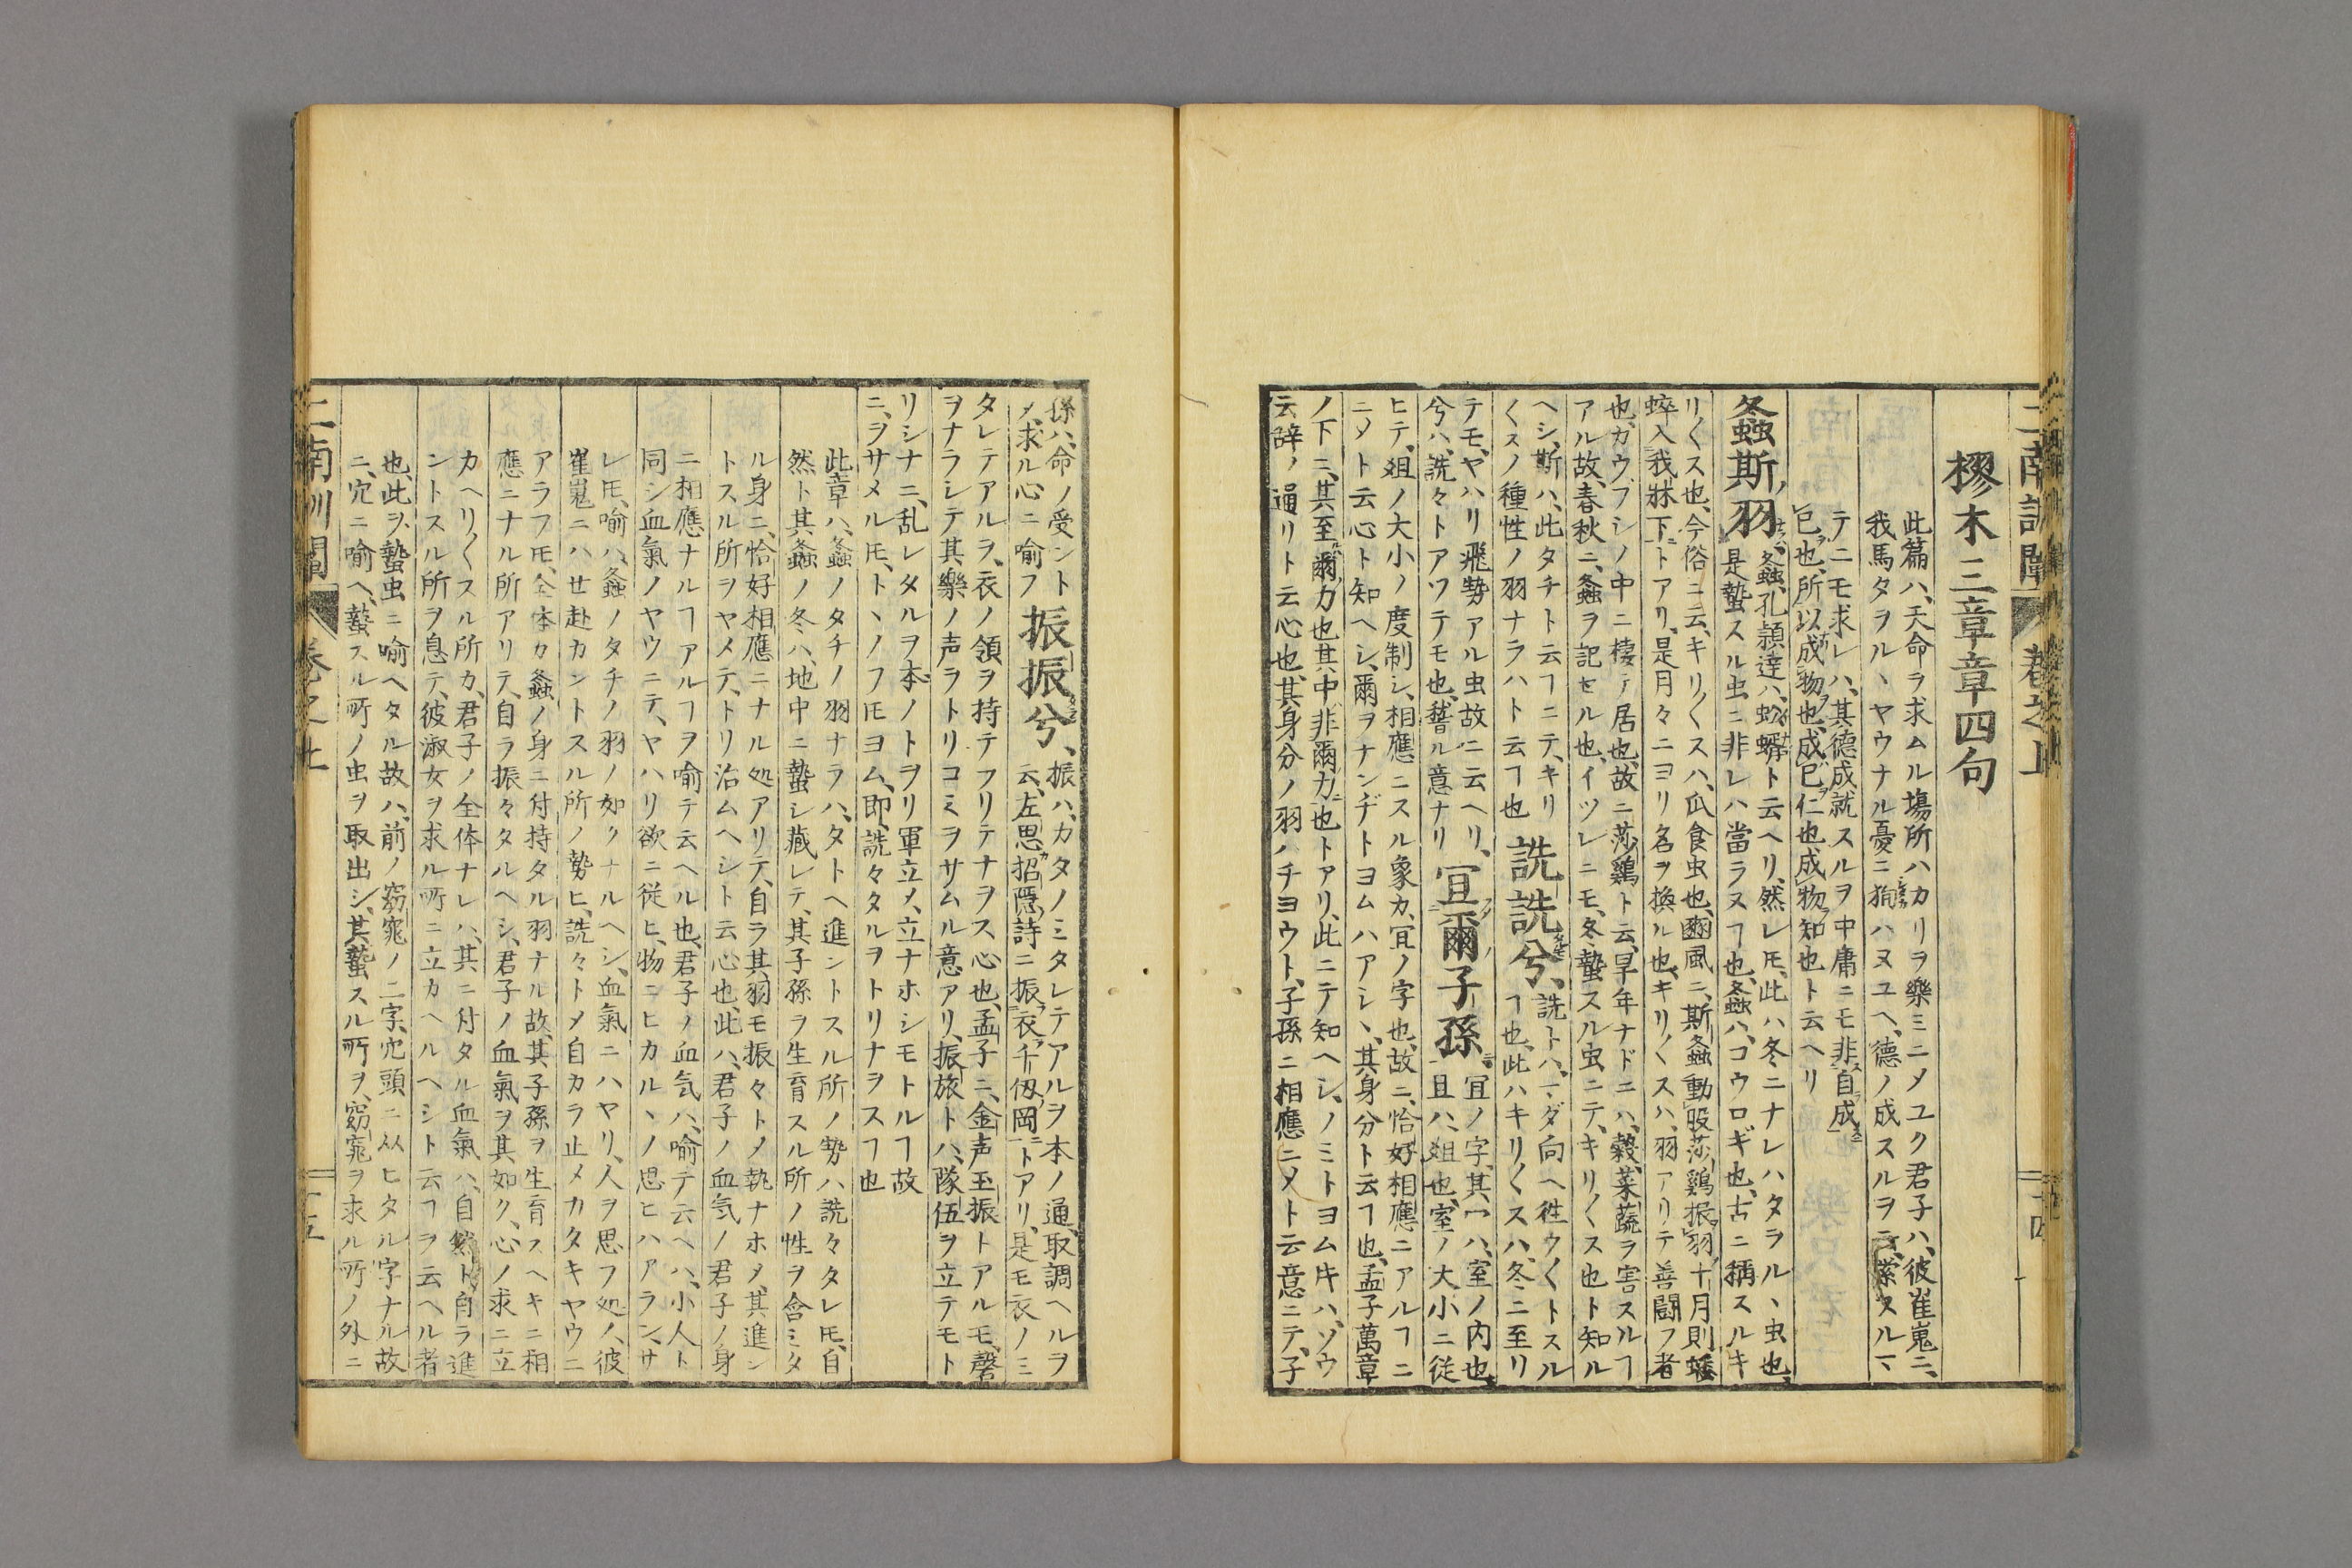 二南訓闡 卷之上 十四
樛木三章章四句
此篇ハ、天命ヲ求ムル塲所ハカリヲ樂ミニメユク君子ハ、彼崔嵬ニ、
我馬タヲル丶ヤウナル憂ニ狥ハヌユヘ、德ノ成スルヲ
テニモ求レハ、其德成就スルヲ中庸ニモ非自成
已也、所以成物也、成已仁也成物知也ト云ヘリ
螽斯羽、
螽、孔頴達ハ、蚣蝑ト云ヘリ、然レ𪜈、此ハ冬ニナレハタヲル丶虫也、
是蟄スル虫ニ非レハ當ラヌヿ也、螽ハ、コウロギ也、古ニ稱スルキ
リ〱ス也、今俗ニ云、キリ〱スハ、瓜食虫也、豳風ニ、斯螽動股莎鷄振羽、十月則蟋
蟀入我牀下トアリ、是月々ニヨリ名ヲ換ル也、キリ〱スハ、羽アリテ善鬪フ者
也、カウブシノ中ニ棲テ居也、故ニ莎鷄ト云、旱年ナドニハ、糓菜蔬ヲ害スルヿ
アル故、春秋ニ、螽ヲ記セル也、イヅレニモ、冬蟄スル虫ニテ、キリ〱ス也ト知ル
ヘシ、斯ハ、此タチト云ヿニテ、キリ
〱スノ種性ノ羽ナラハト云ヿ也
詵詵兮、
詵トハ、一ダ向ヘ徃ウ〱トスル
ヿ也、此ハキリ〱スハ、冬ニ至リ
テモ、ヤハリ飛勢アル虫故ニ云ヘリ、
兮ハ、詵々トアツテモ也、朁ル意ナリ
冝爾子孫
冝ノ字、其宀ハ、室ノ内也、
且ハ、俎也、室ノ大小ニ従
ヒテ、俎ノ大小ノ度制シ、相應ニスル象カ、冝ノ字也、故ニ、恰好相應ニアルヿニ
ニメト云心ト知ヘシ、爾ヲナンヂトヨムハアシ丶、其身分ト云ヿ也、孟子萬章
ノ下ニ、其至爾力也其中非爾力也トアリ、此ニテ知ヘシ、ノミトヨム㐧ハ、ゾウ
云辞ノ通リト云心也、其身分ノ羽ハチヨウト、子孫ニ相應ニメト云意ニテ、子
孫ハ、命ノ受ント
メ、求ル心ニ喻フ
振振兮、
振ハ、カタノミタレテアルヲ本ノ通、取調ヘルヲ
云、左思招隱詩ニ振衣千仭岡トアリ、是モ衣ノミ
タレテアルヲ、衣ノ領ヲ持テフリテナヲス心也、孟子ニ、金声玉振トアルモ、磬
ヲナラシテ其樂ノ声ヲトリコミヲサムル意アリ、振旅トハ、隊伍ヲ立テモト
リシナニ、乱レタルヲ本ノトヲリ軍立メ、立ナホシモトルヿ故
ニ、ヲサメル𪜈、ト丶ノフ𪜈ヨム、即詵々タルヲトリナヲスヿ也
此章ハ、螽ノタチノ羽ナラハ、タトヘ進ントスル所ノ勢ハ詵々タレ𪜈、自
然ト其螽ノ冬ハ、地中ニ蟄シ藏レテ、其子孫ヲ生育スル所ノ性ヲ含ミタ
ル身ニ、恰好相應ニナル処アリテ、自ラ其羽モ振々トメ執ナホメ、其進ン
トスル所ヲヤメテ、トリ治ムヘシト云心也、此ハ、君子ノ血気ノ君子ノ身
ニ相應ナルヿアルヿヲ喻テ云ヘル也、君子ノ血気ハ、喻テ云ヘハ、小人ト
同シ血氣ノヤウニテ、ヤハリ欲ニ従ヒ、物ニヒカル丶ノ思ヒハアラン、サ
レ𪜈、喻ハ、螽ノタチノ羽ノ如クナルヘシ、血氣ニハヤリ、人ヲ思フ処ノ、彼
崔嵬ニハセ赴カントスル所ノ勢ヒ、詵々トメ自カラ止メカタキヤウニ
アラフ𪜈、全体カ螽ノ身ニ付持タル羽ナル故、其子孫ヲ生育スヘキニ相
應ニナル所アリテ、自ラ振々タルヘシ、君子ノ血氣ヲ其如ク、心ノ求ニ立
カヘリ〱スル所カ、君子ノ全体ナレハ、其ニ付タル血氣ハ、自然ト自ラ進
ントスル所ヲ息テ、彼淑女ヲ求ル所ニ立カヘルヘシト云ヿヲ云ヘル者
也、此ヲ、蟄虫ニ喻ヘタル故ハ、前ノ窈窕ノ二字、穴頭ニ从ヒタル字ナル故
ニ、穴ニ喻ヘ、蟄スル所ノ虫ヲ取出シ、其蟄スル所ヲ、窈窕ヲ求ル所ノ外ニ
二南訓闡 卷之上 十五